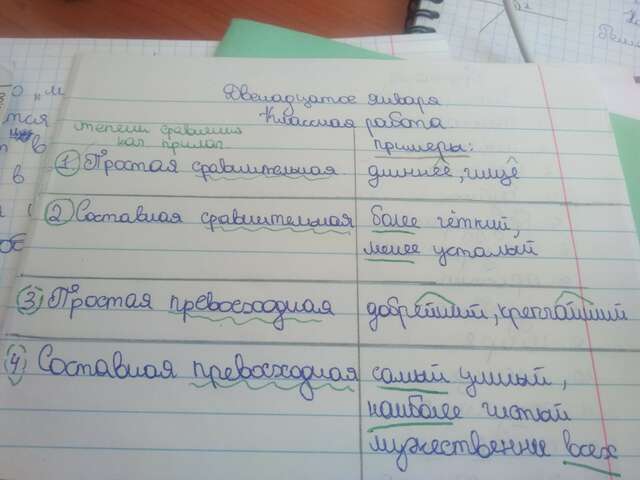 Двенадцатое января
Классная работа
степени сравнения
кач прилаг.
примеры:
1 Простая сравнительная длиннее, чище
2 Составная сравнительная более чёткий,
менее усталый
3 Простая превосходная добрейший, крепчайший
4 Составная превосходная самый умный,
наиболее чистый
мужественнее всех